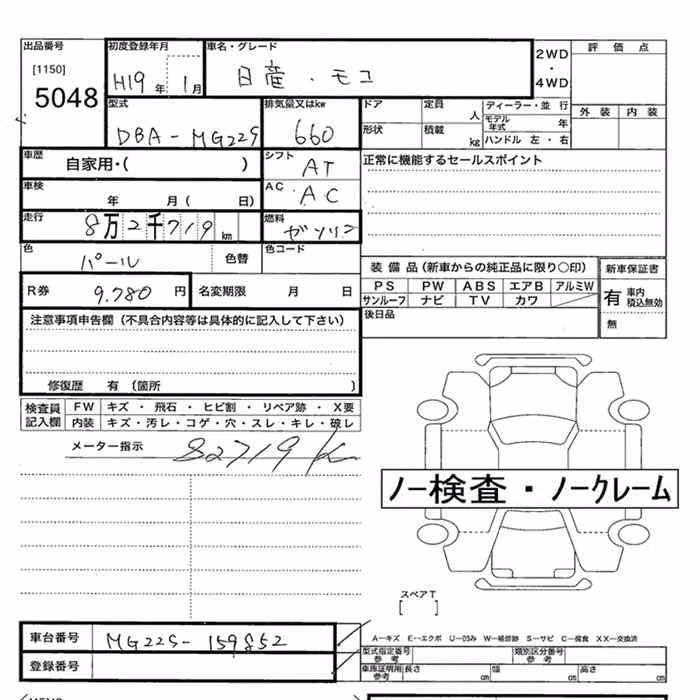 出品番号
[1150]
5048
初度登録年月
H19 年 1月
車名・グレード
日産・モコ
2WD
・
4WD
評価点
外装 内装
型式
DBA-MG22S
排気量又はkw
660
ドア
定員
人
ディーラー・並行
モデル年式 年
形状
積載
kg
ハンドル 左・右
車歴
自家用・( )
シフト
AT
正常に機能するセールスポイント
車検
年 月( 日)
AC
AC
走行
8万2千719km
燃料
ガソリン
色
パール
色替
色コード
装備品(新車からの純正品に限り○印)
新車保証書
PS PW ABS エアB アルミW
サンルーフ ナビ TV カワ
有 車内積込無効
無
R券
9.780円
名変期限 月 日
後日品
注意事項申告欄(不具合内容等は具体的に記入して下さい)
修復歴 有(箇所 )
検査員記入欄
FW キズ・飛石・ヒビ割・リペア跡・X要
内装 キズ・汚レ・コゲ・穴・スレ・キレ・破レ
メーター指示
82719K
ノー検査・ノークレーム
スペアT
[ ]
車台番号
MG22S-159852
登録番号
A--キズ E--エクボ U--凹み W--補修跡 S--サビ C--腐食 XX--交換済
型式指定番号
参考
類別区分番号
参考
車庫証明用
参考
長さ cm
幅 cm
高さ cm
MEMO